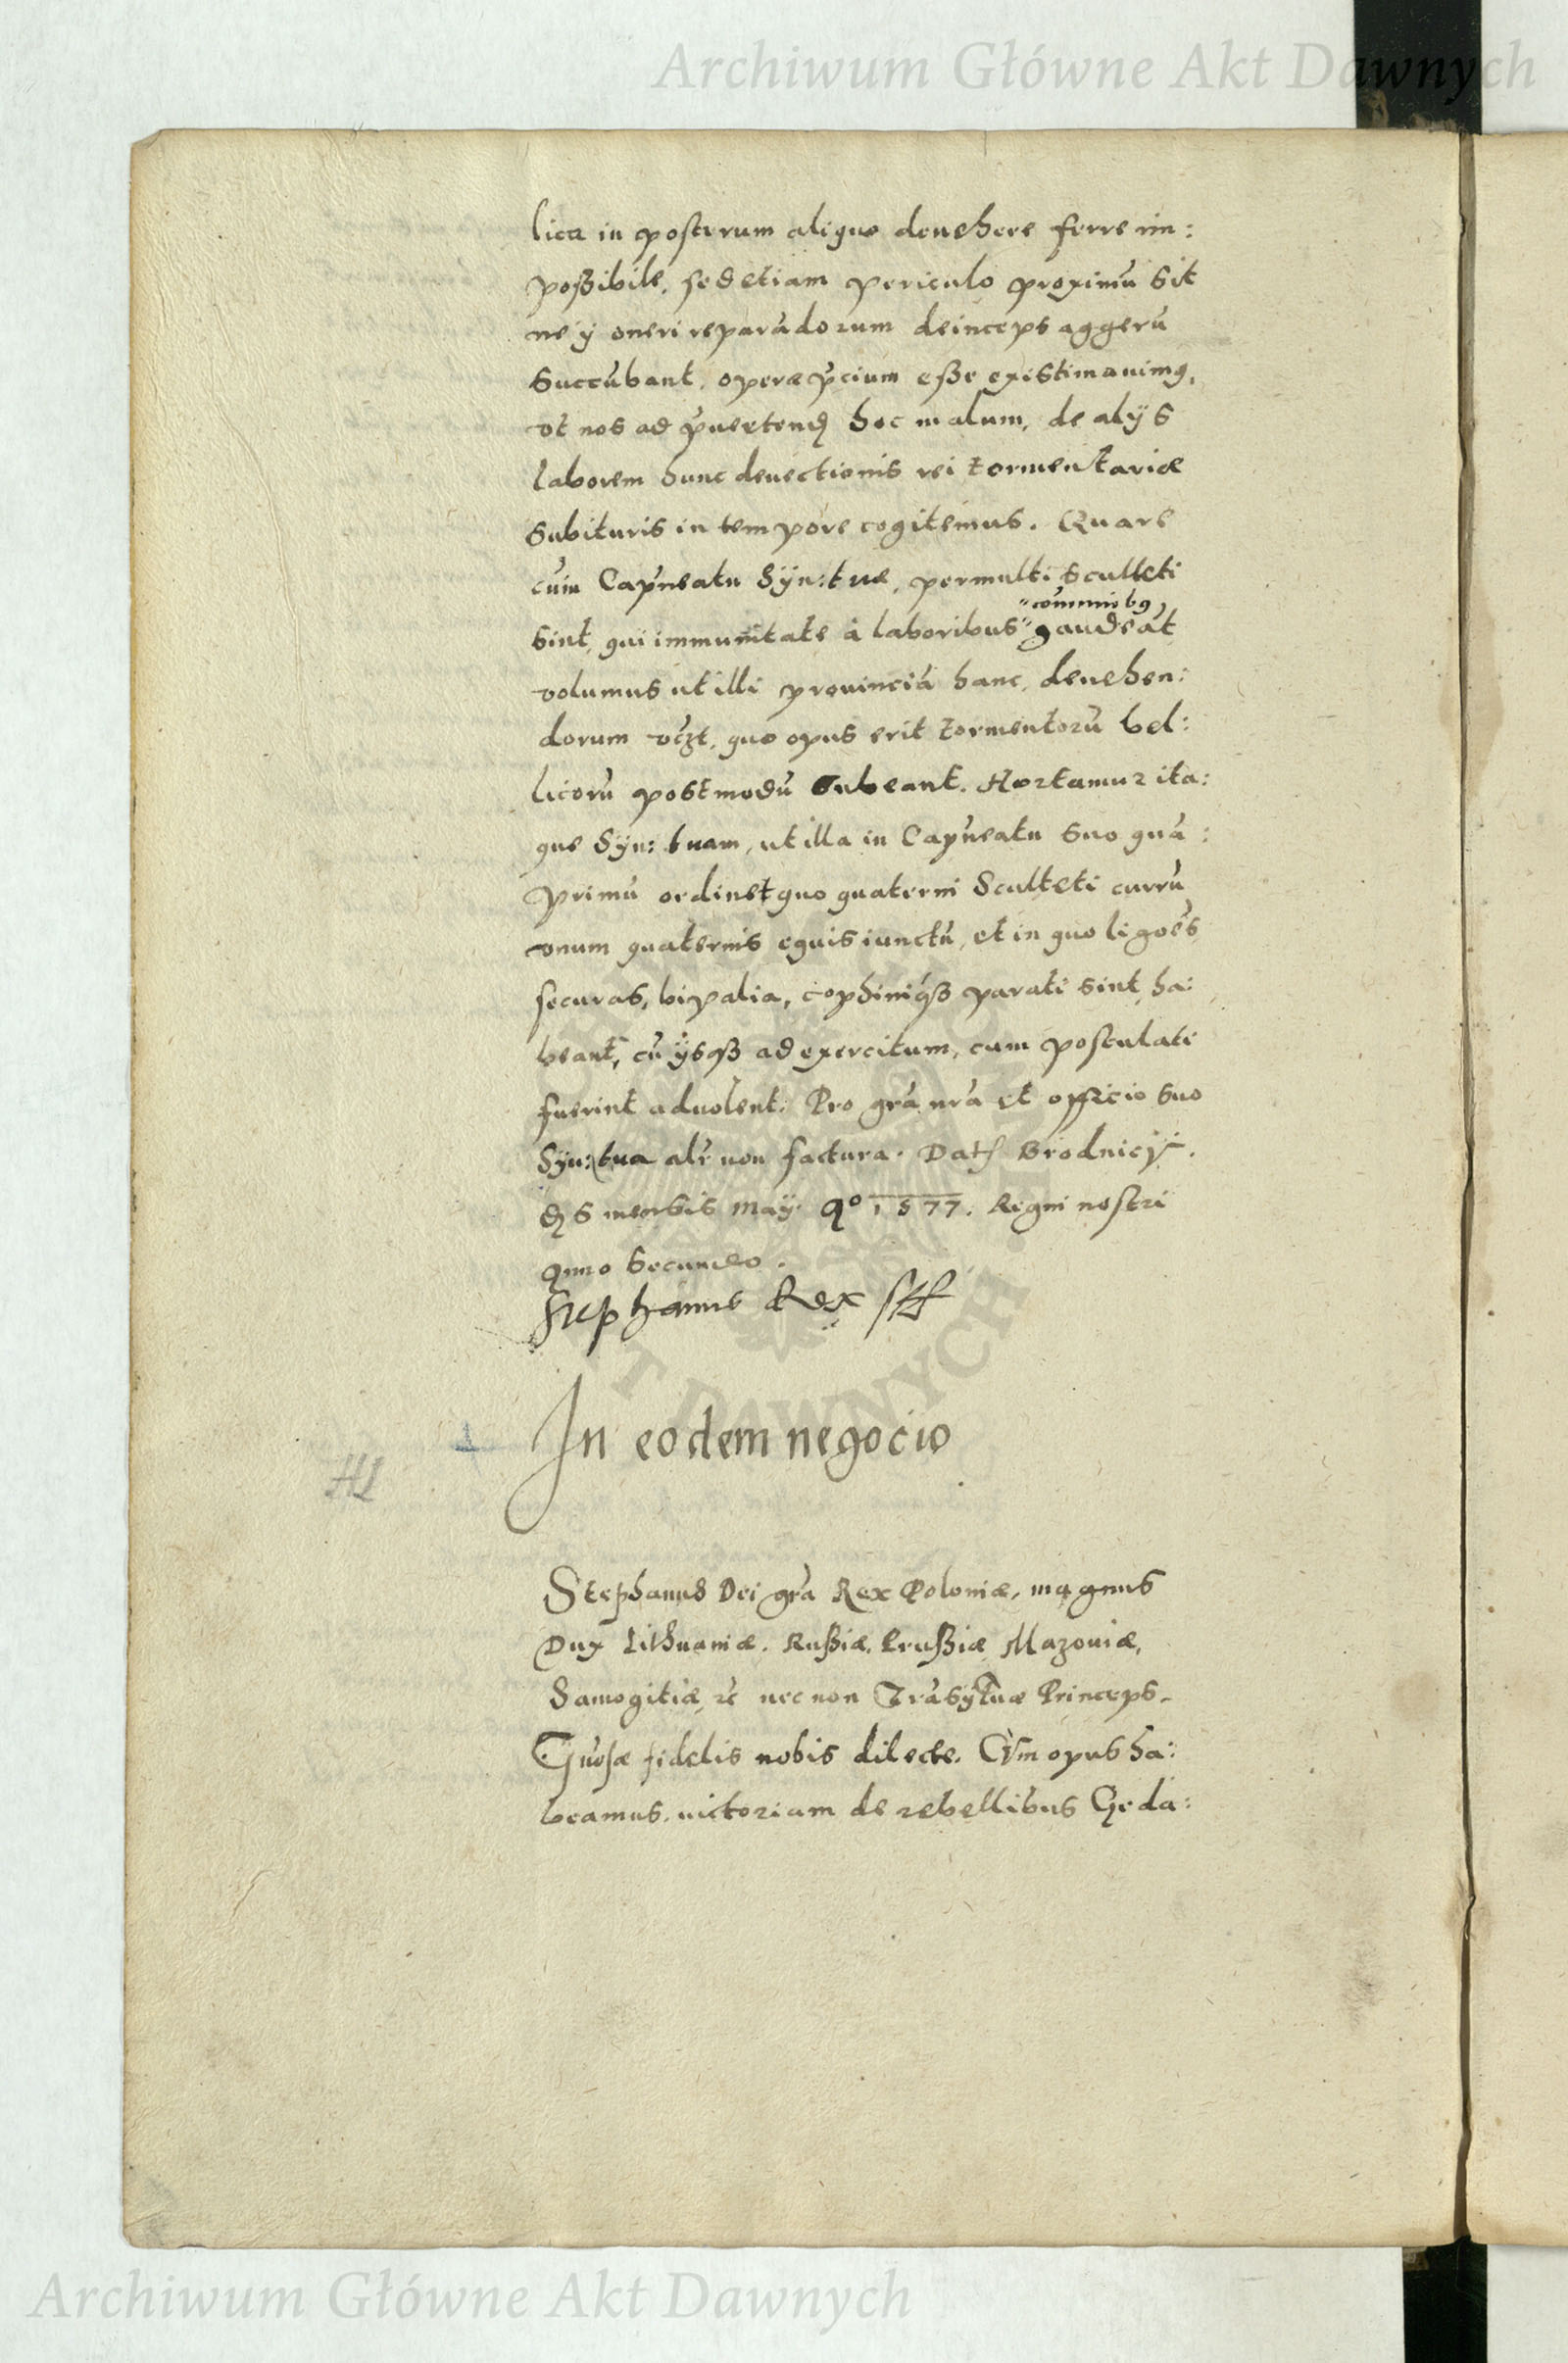 Archiwum Główne Akt Dawnych
lica in posterum aliquo deuehere ferre im:
poßibile, sed etiam periculo proximũ sit
ne ij oneri reparãdorum deinceps aggerũ
succũbant, operæp̃cium eße existimauimꝰ,
vt nos ad p̃uertend hoc malum, de alijs
laborem hunc deuectionis rei tormentariæ
subituris in tempore cogitemus. Quare
cum Capñeatu Syn: tuæ, permulti sculteti
"com̃nibꝰ
sint, qui immunitate à laboribus" gaudeãt,
volumus ut illi prouinciã hanc, deuehen:
dorum vcꝫt, quo opus erit tormentorũ bel:
licorũ postmodũ subeant. Hortamur ita:
que Syn: tuam, ut illa in Capñeatu suo quã:
primũ ordinet quo quaterni Sculteti currũ
vnum quaternis equis iunctũ, et in quo ligões,
secures, bipalia, cophiniqꝫ parati sint, ha:
beant, cũ ijsqꝫ ad exercitum, cum postulati
fuerint aduolent. Pro grã nrã et officio suo
Syn: tua alr̃ non factura. Dat Brodnicij.
d 6 mensis Maij. Aº 1577. Regni nostri
Anno Secundo.
Stephanus Rex sst
In eodem negocio
Stephanus Dei grã Rex Poloniæ, magnus
Dux Lithuaniæ, Rußiæ, Prußiæ, Mazouiæ,
Samogitiæ, &c nec non Trãsyluæ Princeps.
Gñose fidelis nobis dilecte. Cum opus ha:
beamus, uictoriam de rebellibus Geda:
Archiwum Główne Akt Dawnych